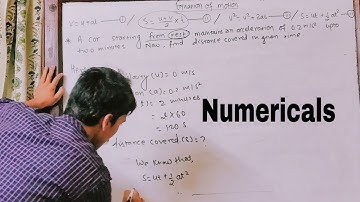 Equation of motion
V = u + at — ① / S = (u+v)/2 × t — ② / v² = u² + 2as — ③ / S = ut + ½at² — ④
* A car starting from rest maintain an acceleration of 0.2 m/s² upto
two minutes. Now, find distance covered in given time
(u) = 0 m/s
(a) = 0.2 m/s²
2 minutes
= 2 × 60
= 120 s
distance covered (s) = ?
We know that,
S = ut + ½ at²
Numericals